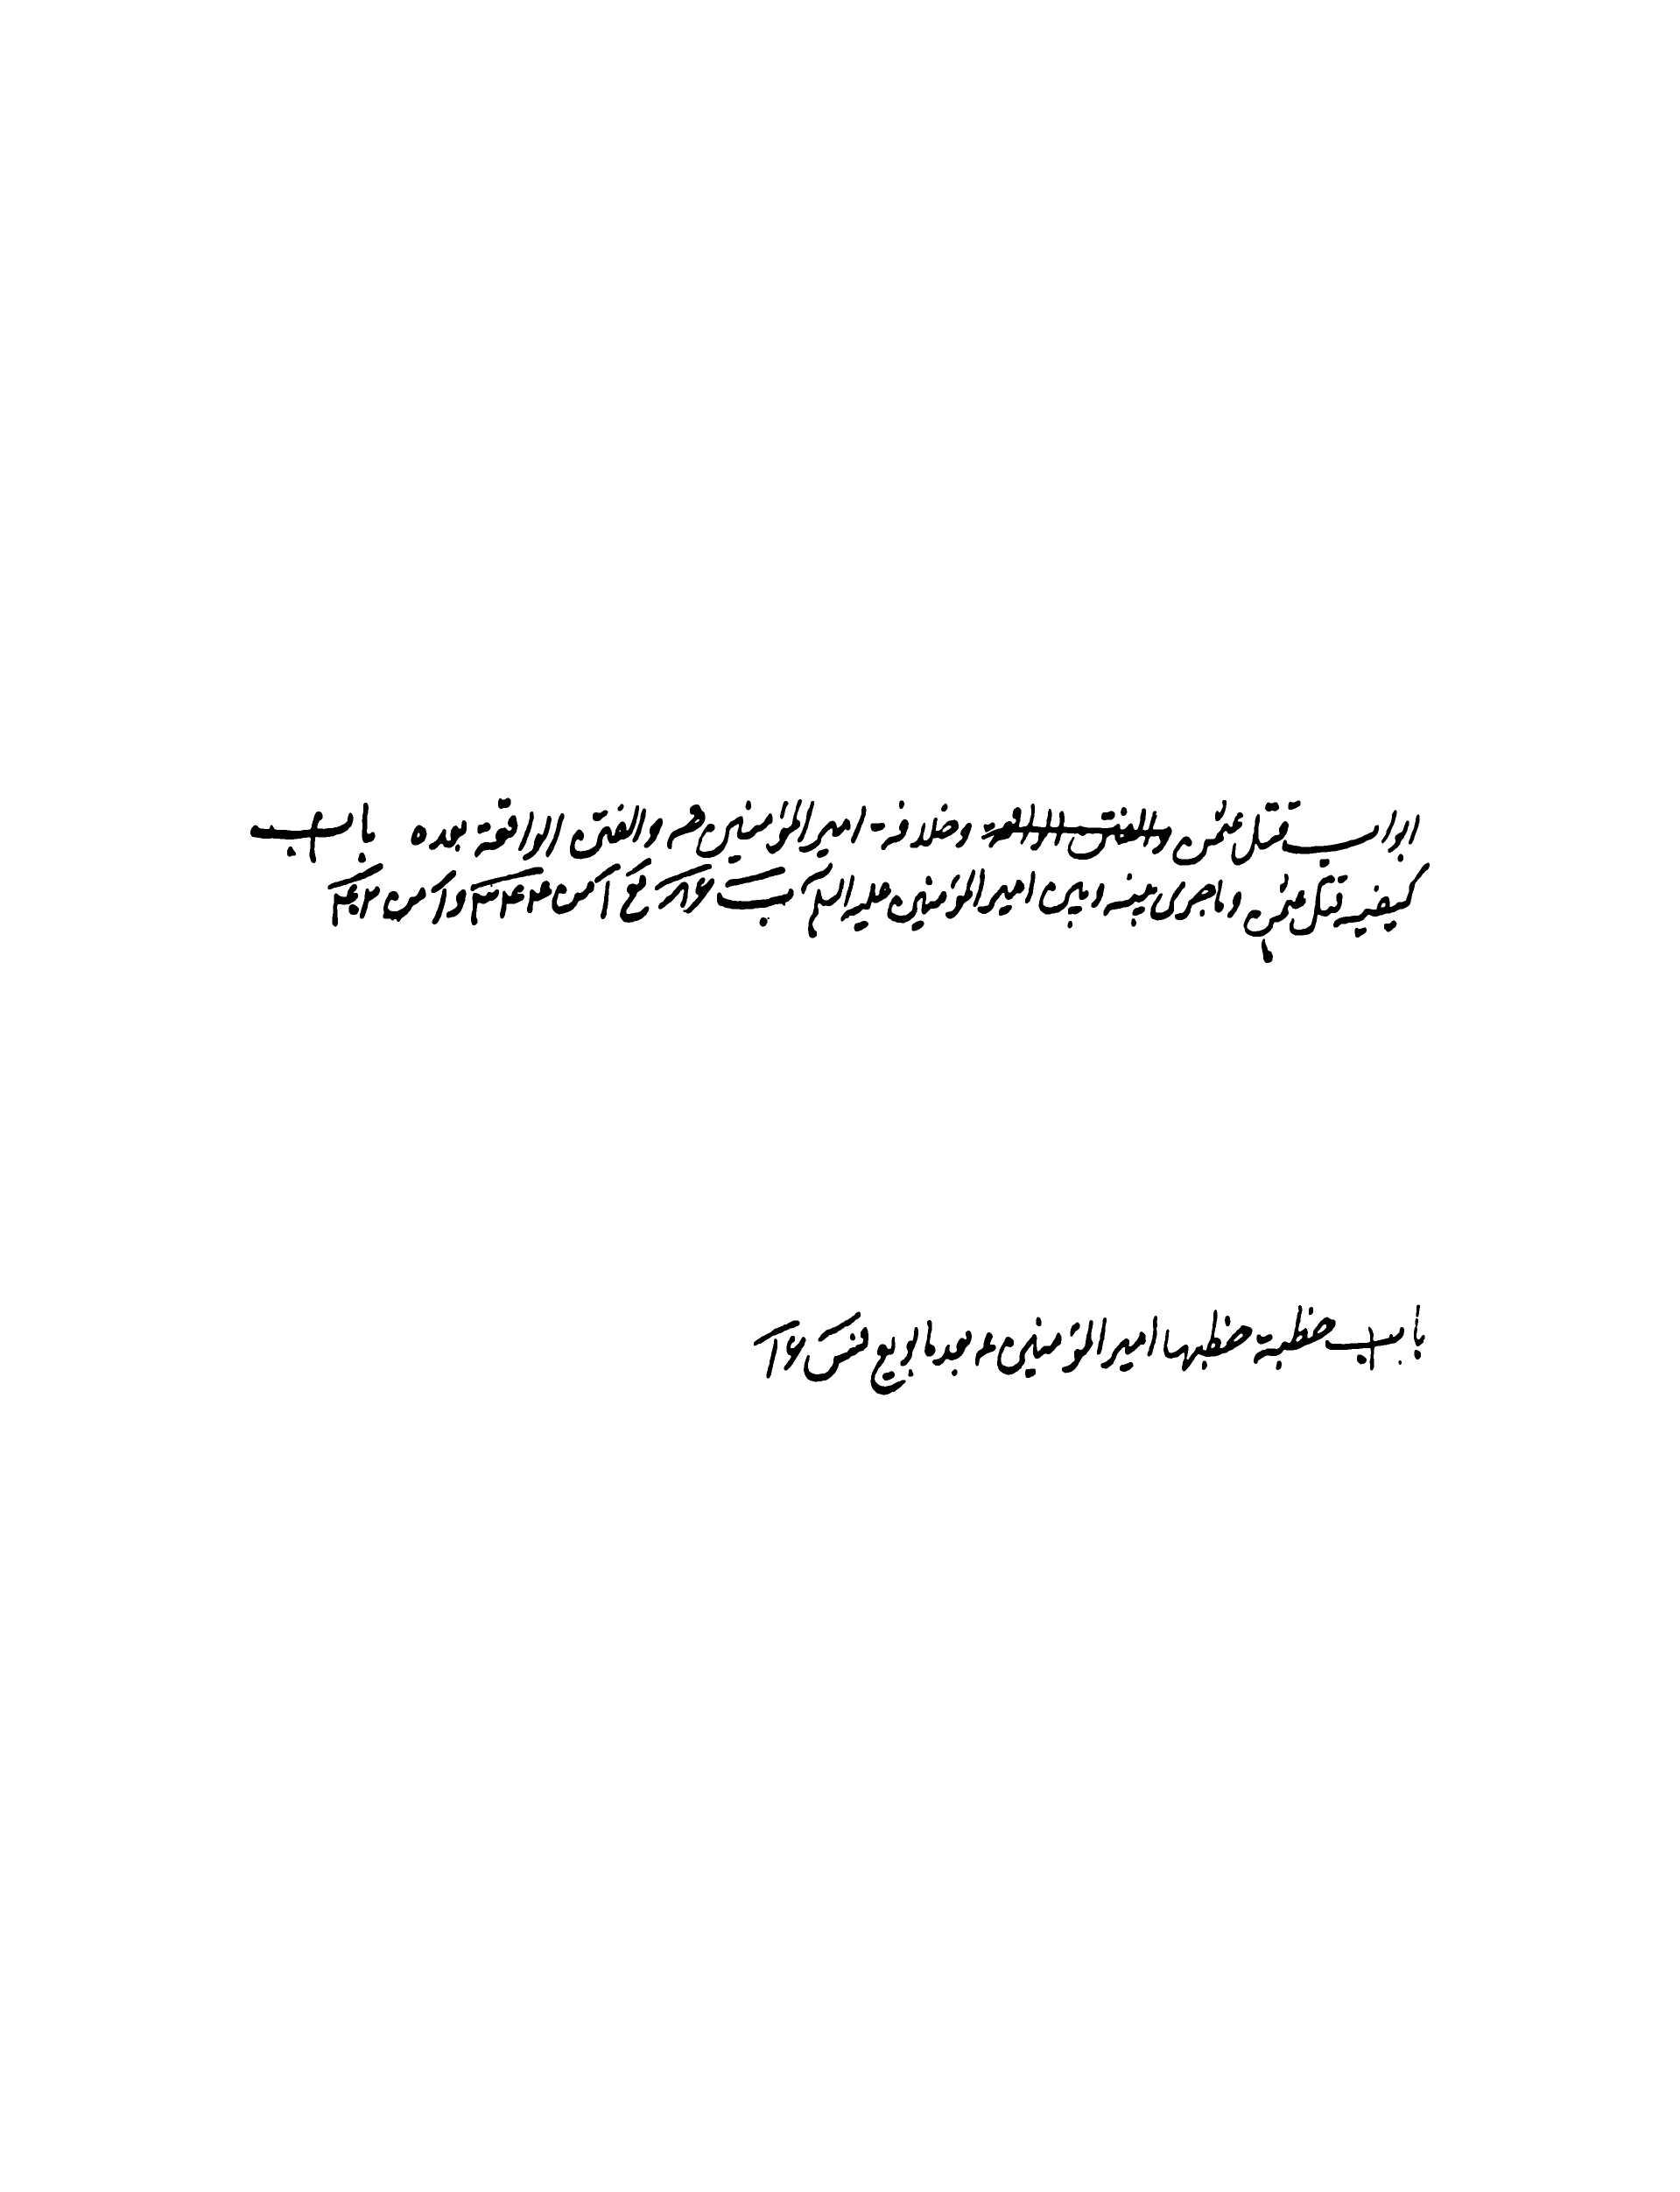 ابواب قتل عثمن والفتن الواقعة وخلافة امير المؤمنين ص والفتن الواقعة بعده باب
كيفية قتل عثمن وما جرى بينه وبين امير المؤمنين عليه السلم
باب خطبة خطبها امير المؤمنين ع بعد ما بويع